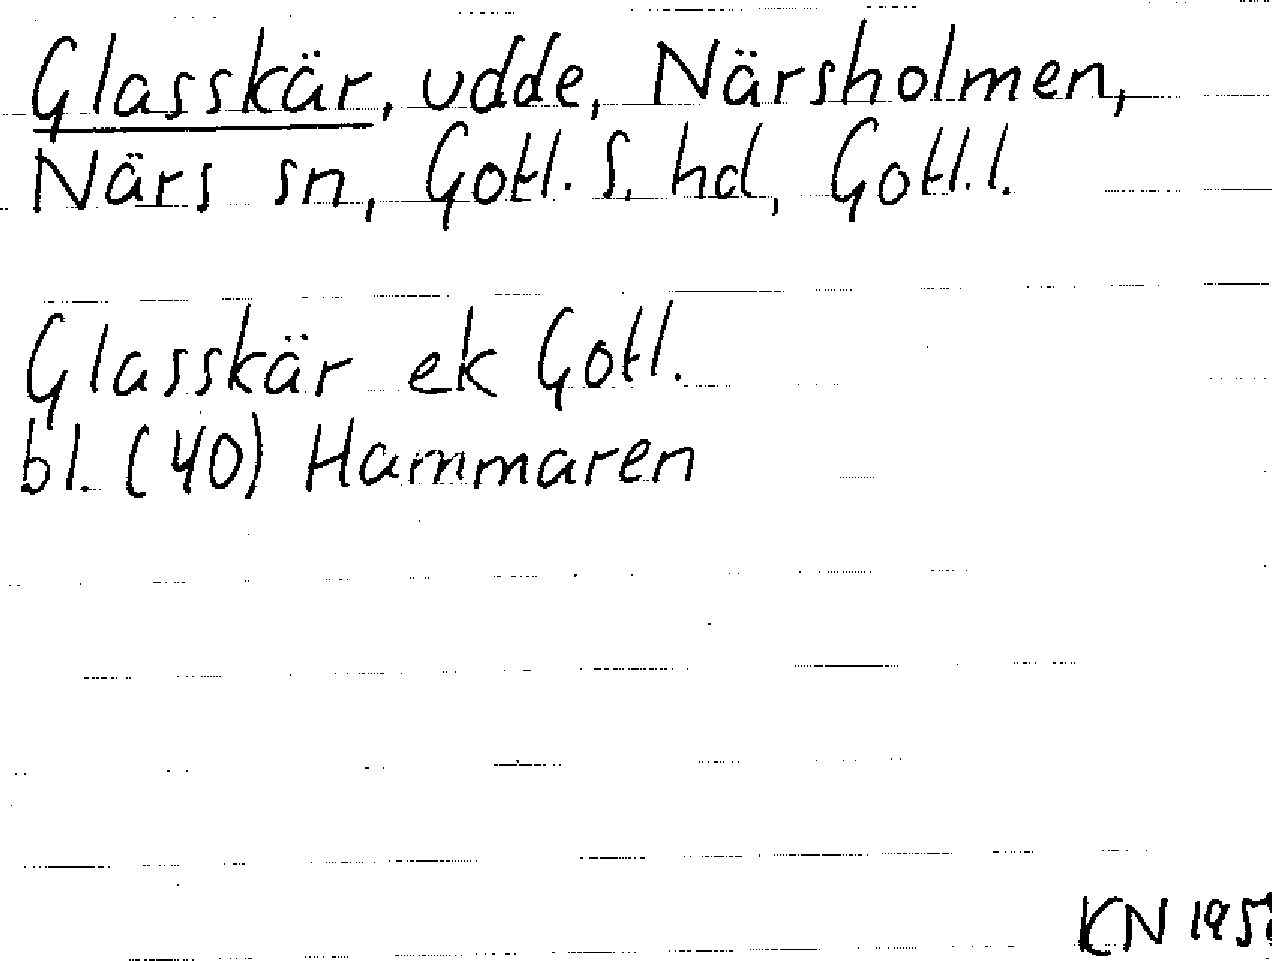 Glasskär, udde, Närsholmen,
Närs sn, Gotl. S. hd, Gotl.l.
Glasskär ek Gotl.
bl. (40) Hammaren
KN